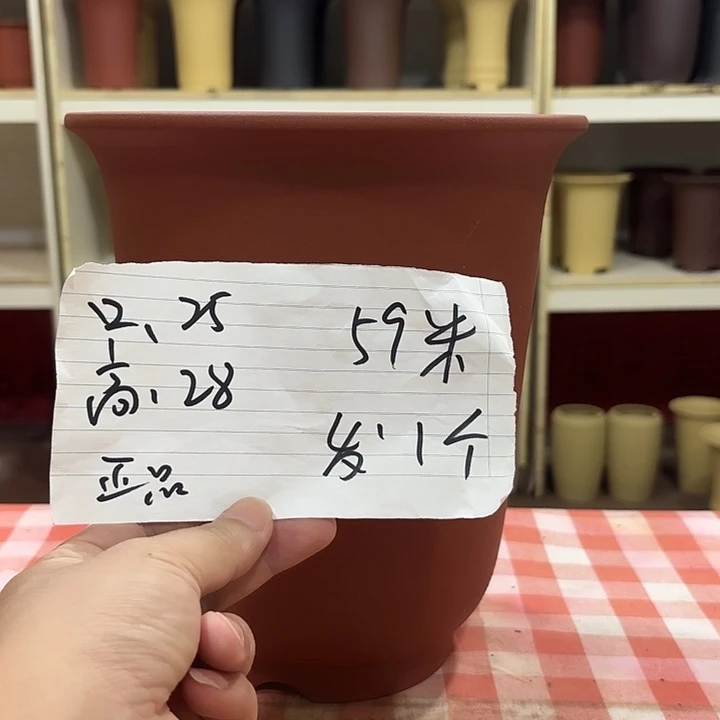 口、25
高、28
亚品
59米
发、1个